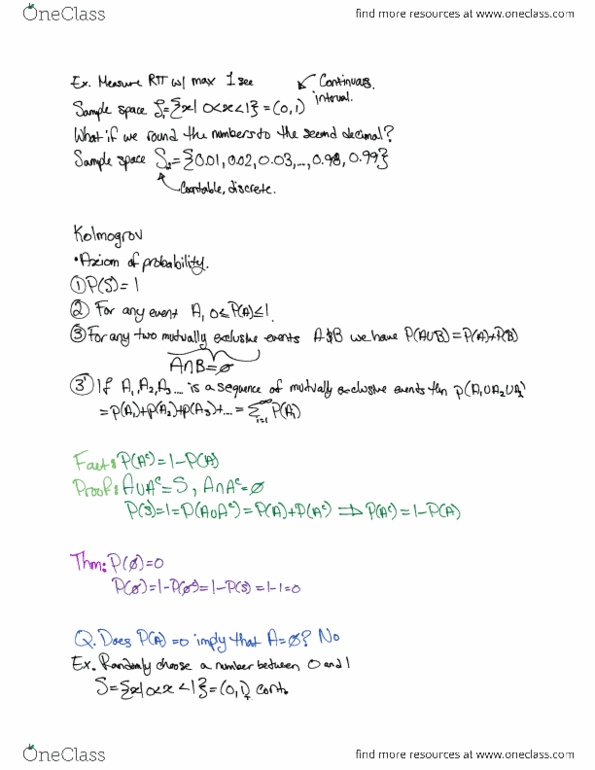 OneClass
find more resources at www.oneclass.com
Ex. Measure RTT w/ max 1 sec
Continuous interval.
Sample space S₁={x| 0<x<1} = (0,1)
What if we round the numbers to the second decimal?
Sample space S₂={0.01, 0.02, 0.03, ..., 0.98, 0.99}
Countable, discrete.
Kolmogrov
• Axiom of probability.
① P(S)=1
② For any event A, 0≤P(A)≤1
③ For any two mutually exclusive events A & B we have P(A∪B)=P(A)+P(B)
A∩B=∅
③' If A₁, A₂, A₃ ... is a sequence of mutually exclusive events then P(A₁∪A₂∪A₃
= P(A₁)+P(A₂)+P(A₃)+... = ∑_{i=1}^{∞} P(Ai)
Fact: P(Aᶜ)=1-P(A)
Proof: A∪Aᶜ=S, A∩Aᶜ=∅
P(S)=1=P(A∪Aᶜ)=P(A)+P(Aᶜ) ⟹ P(Aᶜ)=1-P(A)
Thm: P(∅)=0
P(∅)=1-P(∅ᶜ)=1-P(S)=1-1=0
Q. Does P(A)=0 imply that A=∅? No
Ex. Randomly choose a number between 0 and 1
S={x| 0<x<1}=(0,1) cont.
OneClass
find more resources at www.oneclass.com